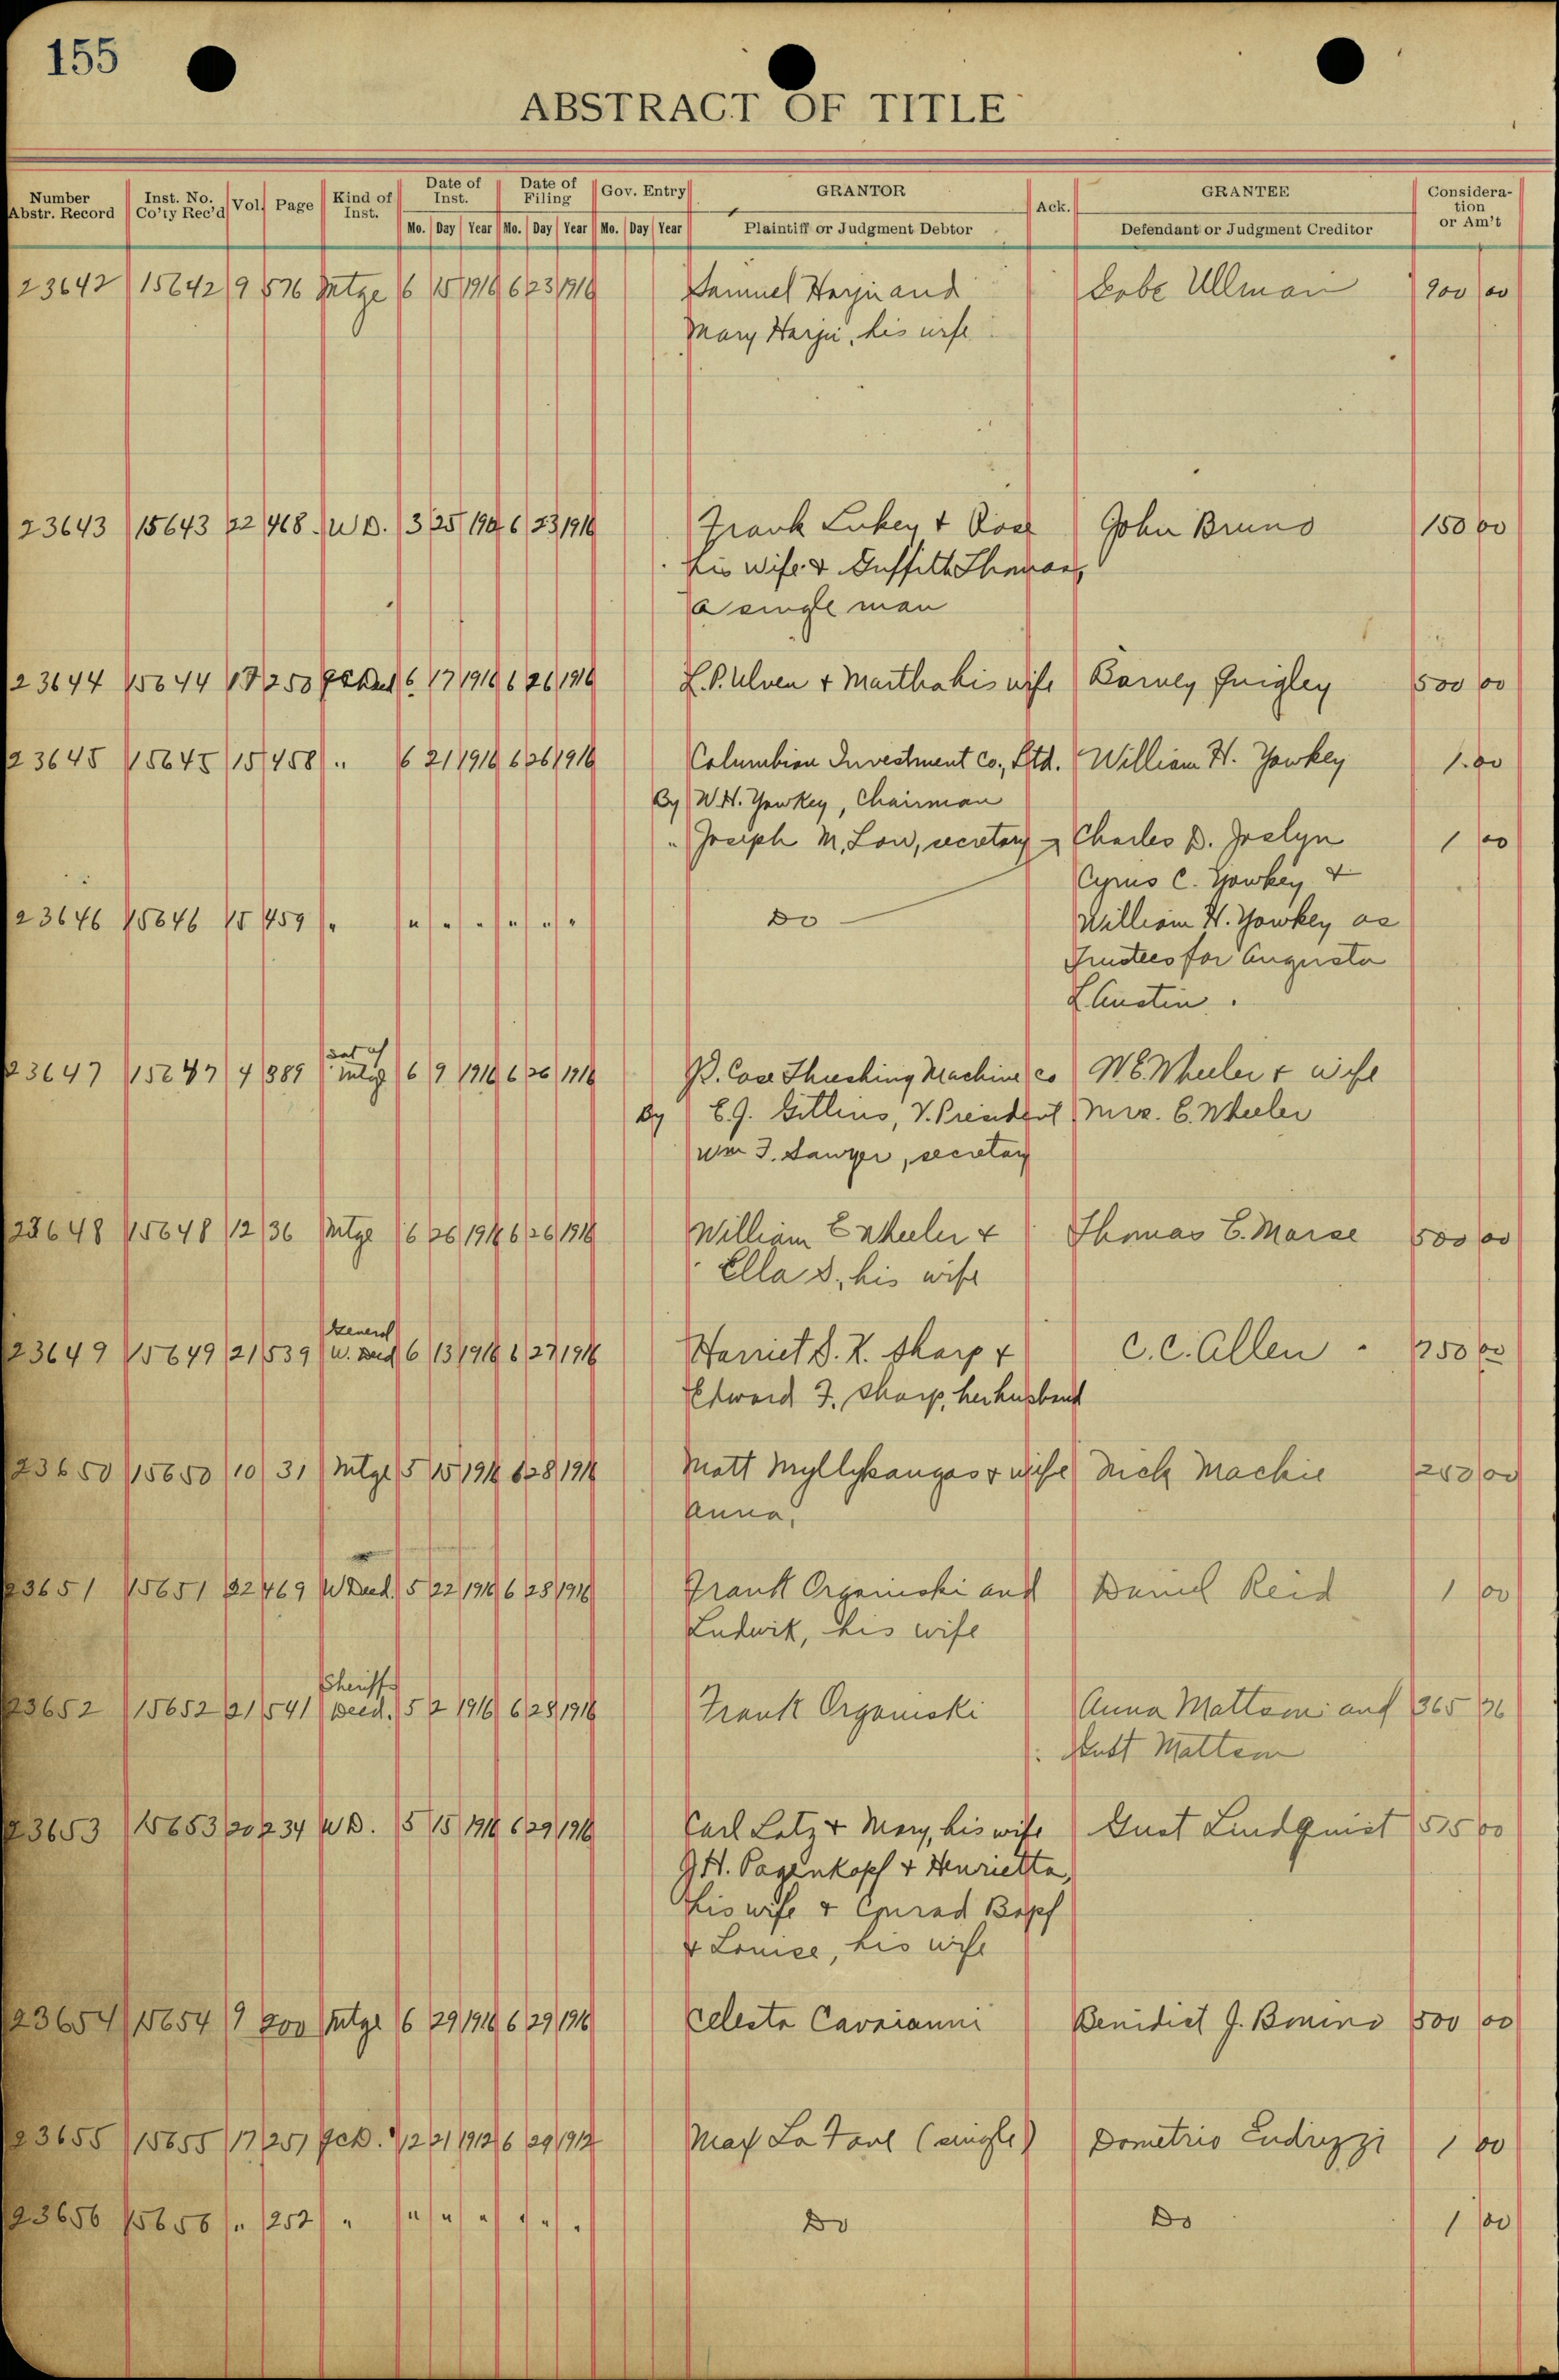 155
ABSTRACT OF TITLE
Number Abstr. Record | Inst. No. Co'ty Rec'd | Vol. | Page | Kind of Inst. | Date of Inst. Mo. Day Year | Date of Filing Mo. Day Year | Gov. Entry Mo. Day Year | GRANTOR Plaintiff or Judgment Debtor | Ack. | GRANTEE Defendant or Judgment Creditor | Consideration or Am't
23642 15642 9 576 Mtge 6 15 1916 6 23 1916 Samuel Harju and Ullman 900 00
Mary Harju, his wife
23643 15643 22 468 W D. 3 25 6 23 1916 Frank Lukey & Rose John Bruno 150 00
his wife &
a single man
23644 15644 17 250 6 17 1916 6 26 1916 L.P. Ulven & Martha his wife Barney Quigley 500 00
23645 15645 15 458 " 6 21 1916 6 26 1916 Columbian Investment Co., Ltd. William H. Yawkey 1.00
By W.H. Yawkey, Chairman
" Joseph M. Low, secretary Charles D. Joslyn 1 00
Cyrus C. Yawkey &
23646 15646 15 459 " " " " " " " Do William H. Yawkey as
Trustees for Augusta
L Austin.
Sat of
23647 15647 4 389 Mtge 6 9 1916 6 26 1916 Case Threshing Machine Co W.E. Wheeler & wife
By E.J. Gittins, V. President Mrs. E. Wheeler
Wm F. Sawyer, secretary
23648 15648 12 36 Mtge 6 26 1916 6 26 1916 William E Wheeler & Thomas E. 500 00
Ella S, his wife
General
23649 15649 21 539 W. Deed 6 13 1916 6 27 1916 Harriet S. K. Sharp & C. C. Allen 00
Edward F. Sharp, her husband
23650 15650 10 31 Mtge 5 15 1916 6 28 1916 Matt Myllykangas & wife Nick Mackie 250 00
Anna,
23651 15651 22 469 W Deed. 5 22 1916 6 28 1916 Frank Organiski and Daniel Reid 1 00
Ludwik, his wife
Sheriffs
23652 15652 21 541 Deed. 5 2 1916 6 28 1916 Frank Organiski Anna Mattson and 365
Mattson
23653 15653 20 234 W D. 5 15 1916 6 29 1916 Carl Latz & Mary, his wife Gust Lindquist 515 00
H. Pagenkopf & Henrietta,
his wife & Conrad Bopf
& Louise, his wife
23654 15654 9 Mtge 6 29 1916 6 29 1916 Celesta Cavaianni Benidict J. Bonino 500 00
23655 15655 17 251 QCD. 12 21 1912 6 29 Max La Fave (single) Dometrio Endrizzi 1 00
23656 15656 " 252 " " " " " " " Do Do 1 00